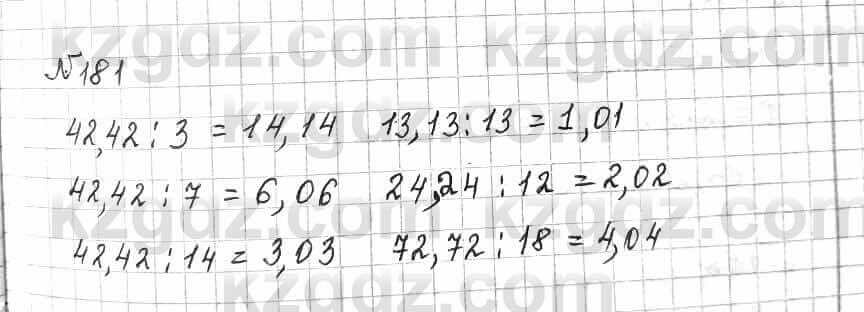 kzgdz.com kzgdz.com
№181
42,42 : 3 = 14,14 13,13 : 13 = 1,01
42,42 : 7 = 6,06 24,24 : 12 = 2,02
42,42 : 14 = 3,03 72,72 : 18 = 4,04